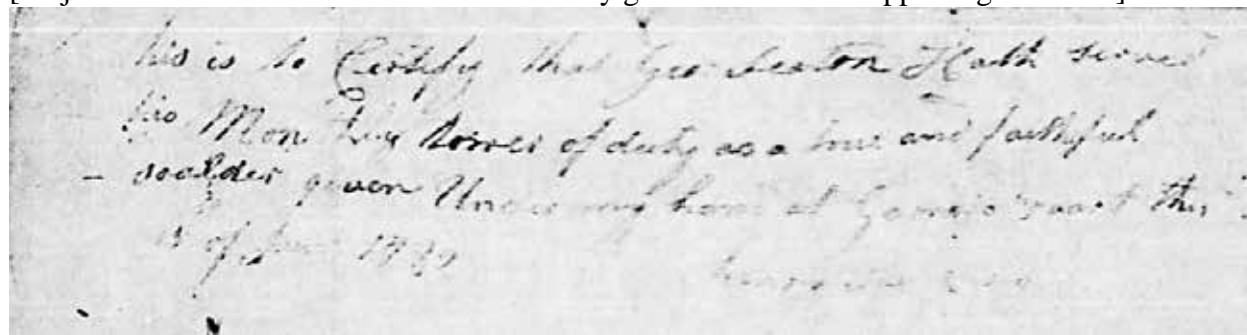 his is to Certify that Geo Seaton Heath served
his Mon Thly tower of duty as a true and faithful
soalder given Under my hand at this
1782